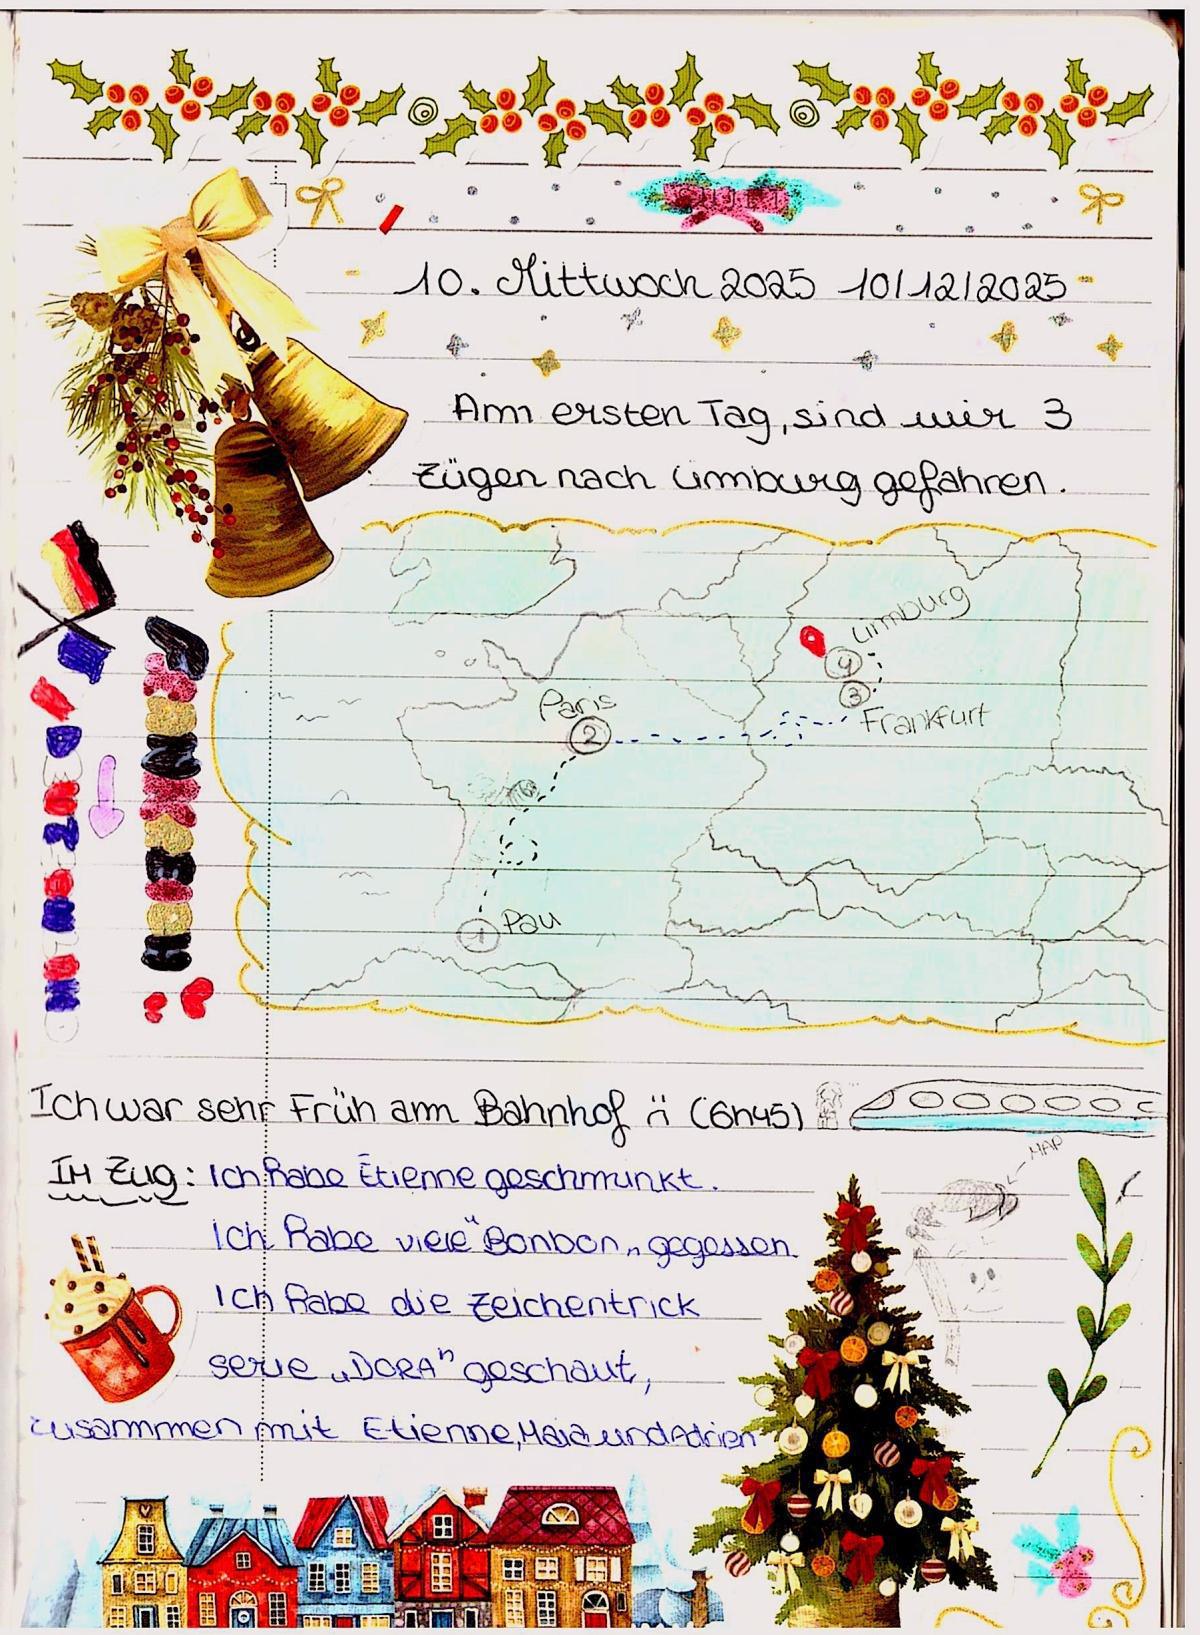 10. Mittwoch 2025 10/12/2025
Am ersten Tag, sind wir 3
Zügen nach Limburg gefahren.
Limburg
4
3
Paris
Frankfurt
2
Pau
1
Ich war sehr Früh am Bahnhof ü (6h45)
MAP
IM Zug: Ich habe Étienne geschmunkt.
Ich habe viele "Bonbon„ gegessen.
Ich habe die Zeichentrick
serie „DORA" geschaut,
zusammmen mit Etienne, Maia und Adrien